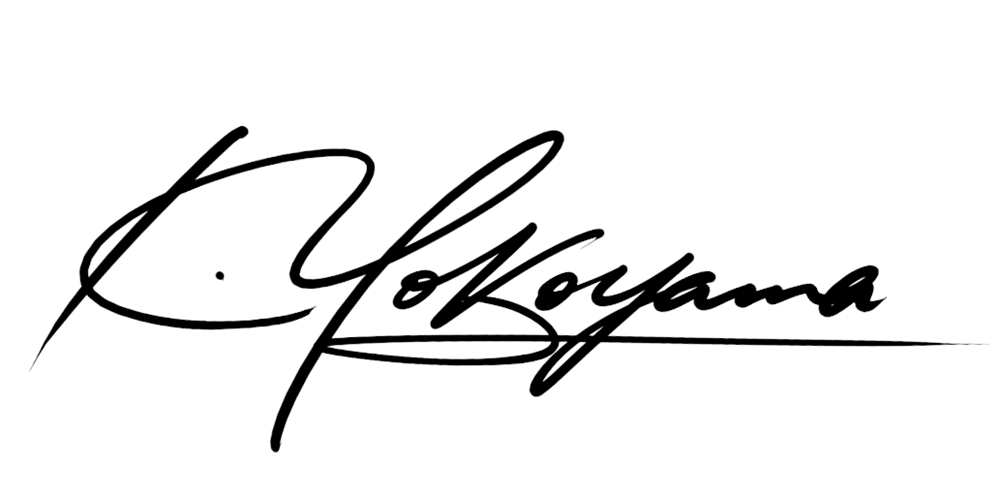 K. Yokoyama